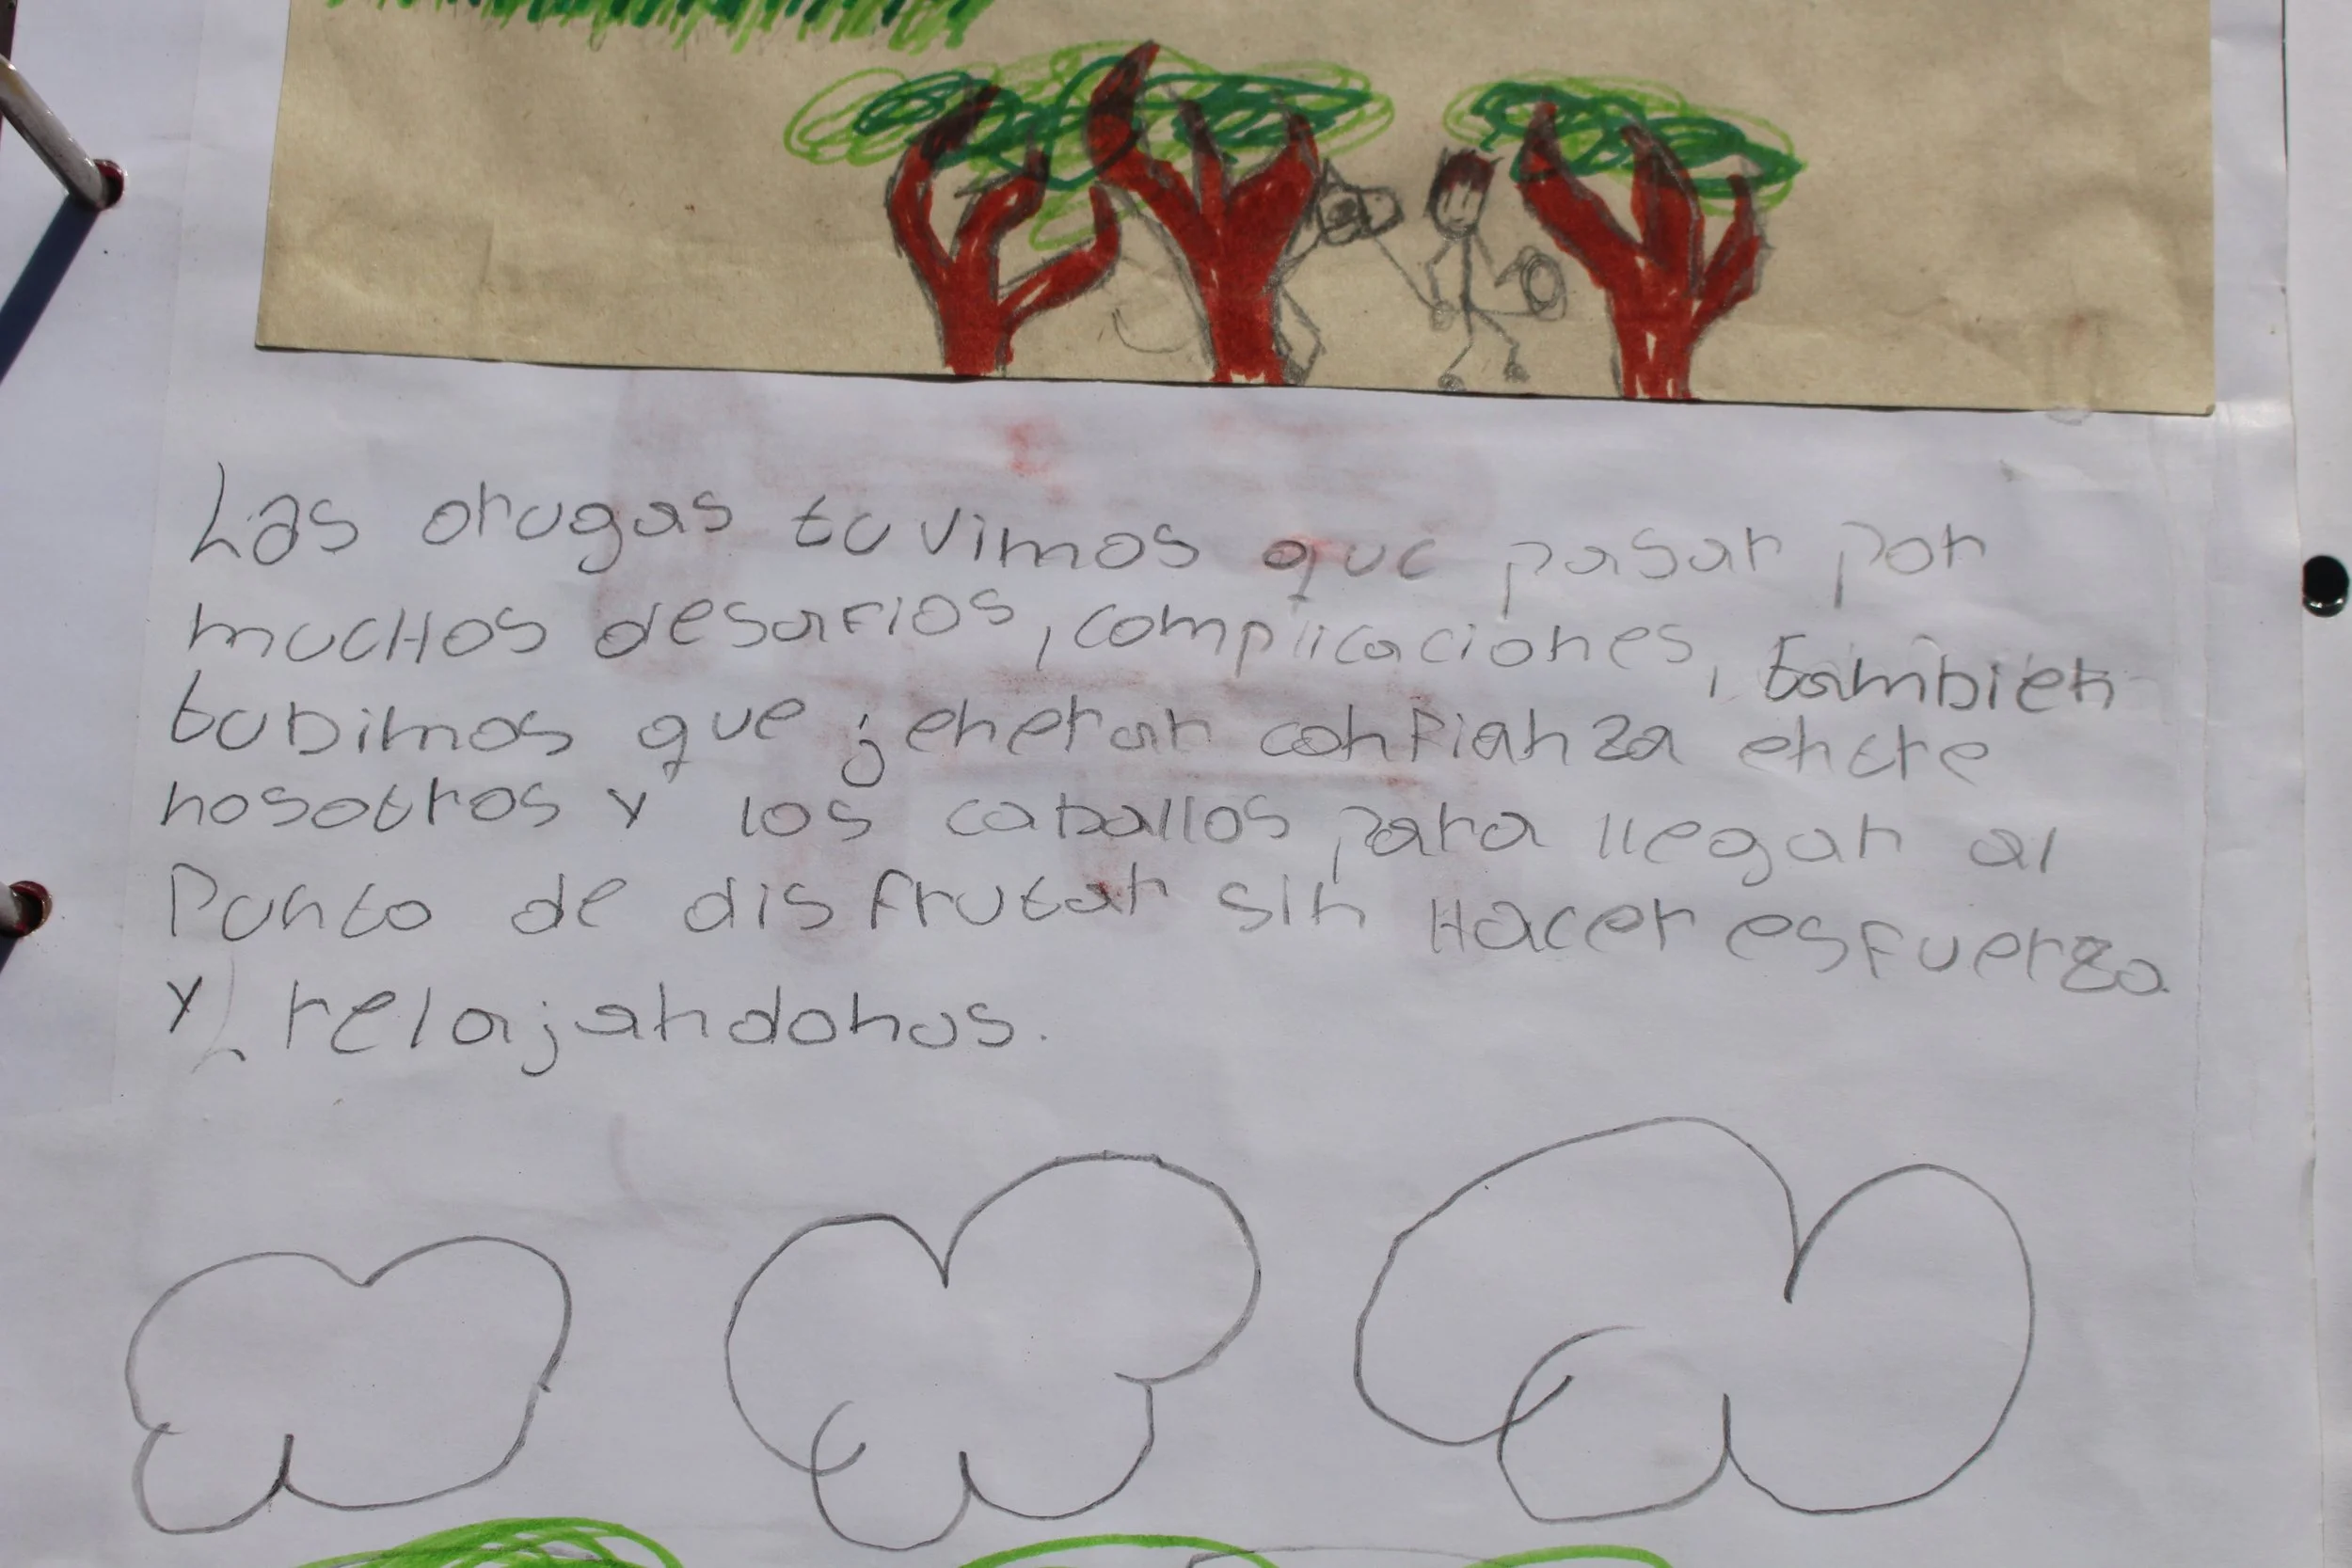 Las orugas tuvimos que pasar por
mucHos desafios, complicaciones, tambien
tubimos que jenerar confianza entre
nosotros y los caballos para llegar al
Punto de disfrutar sin Hacer esfuerzo
y relajandonos.